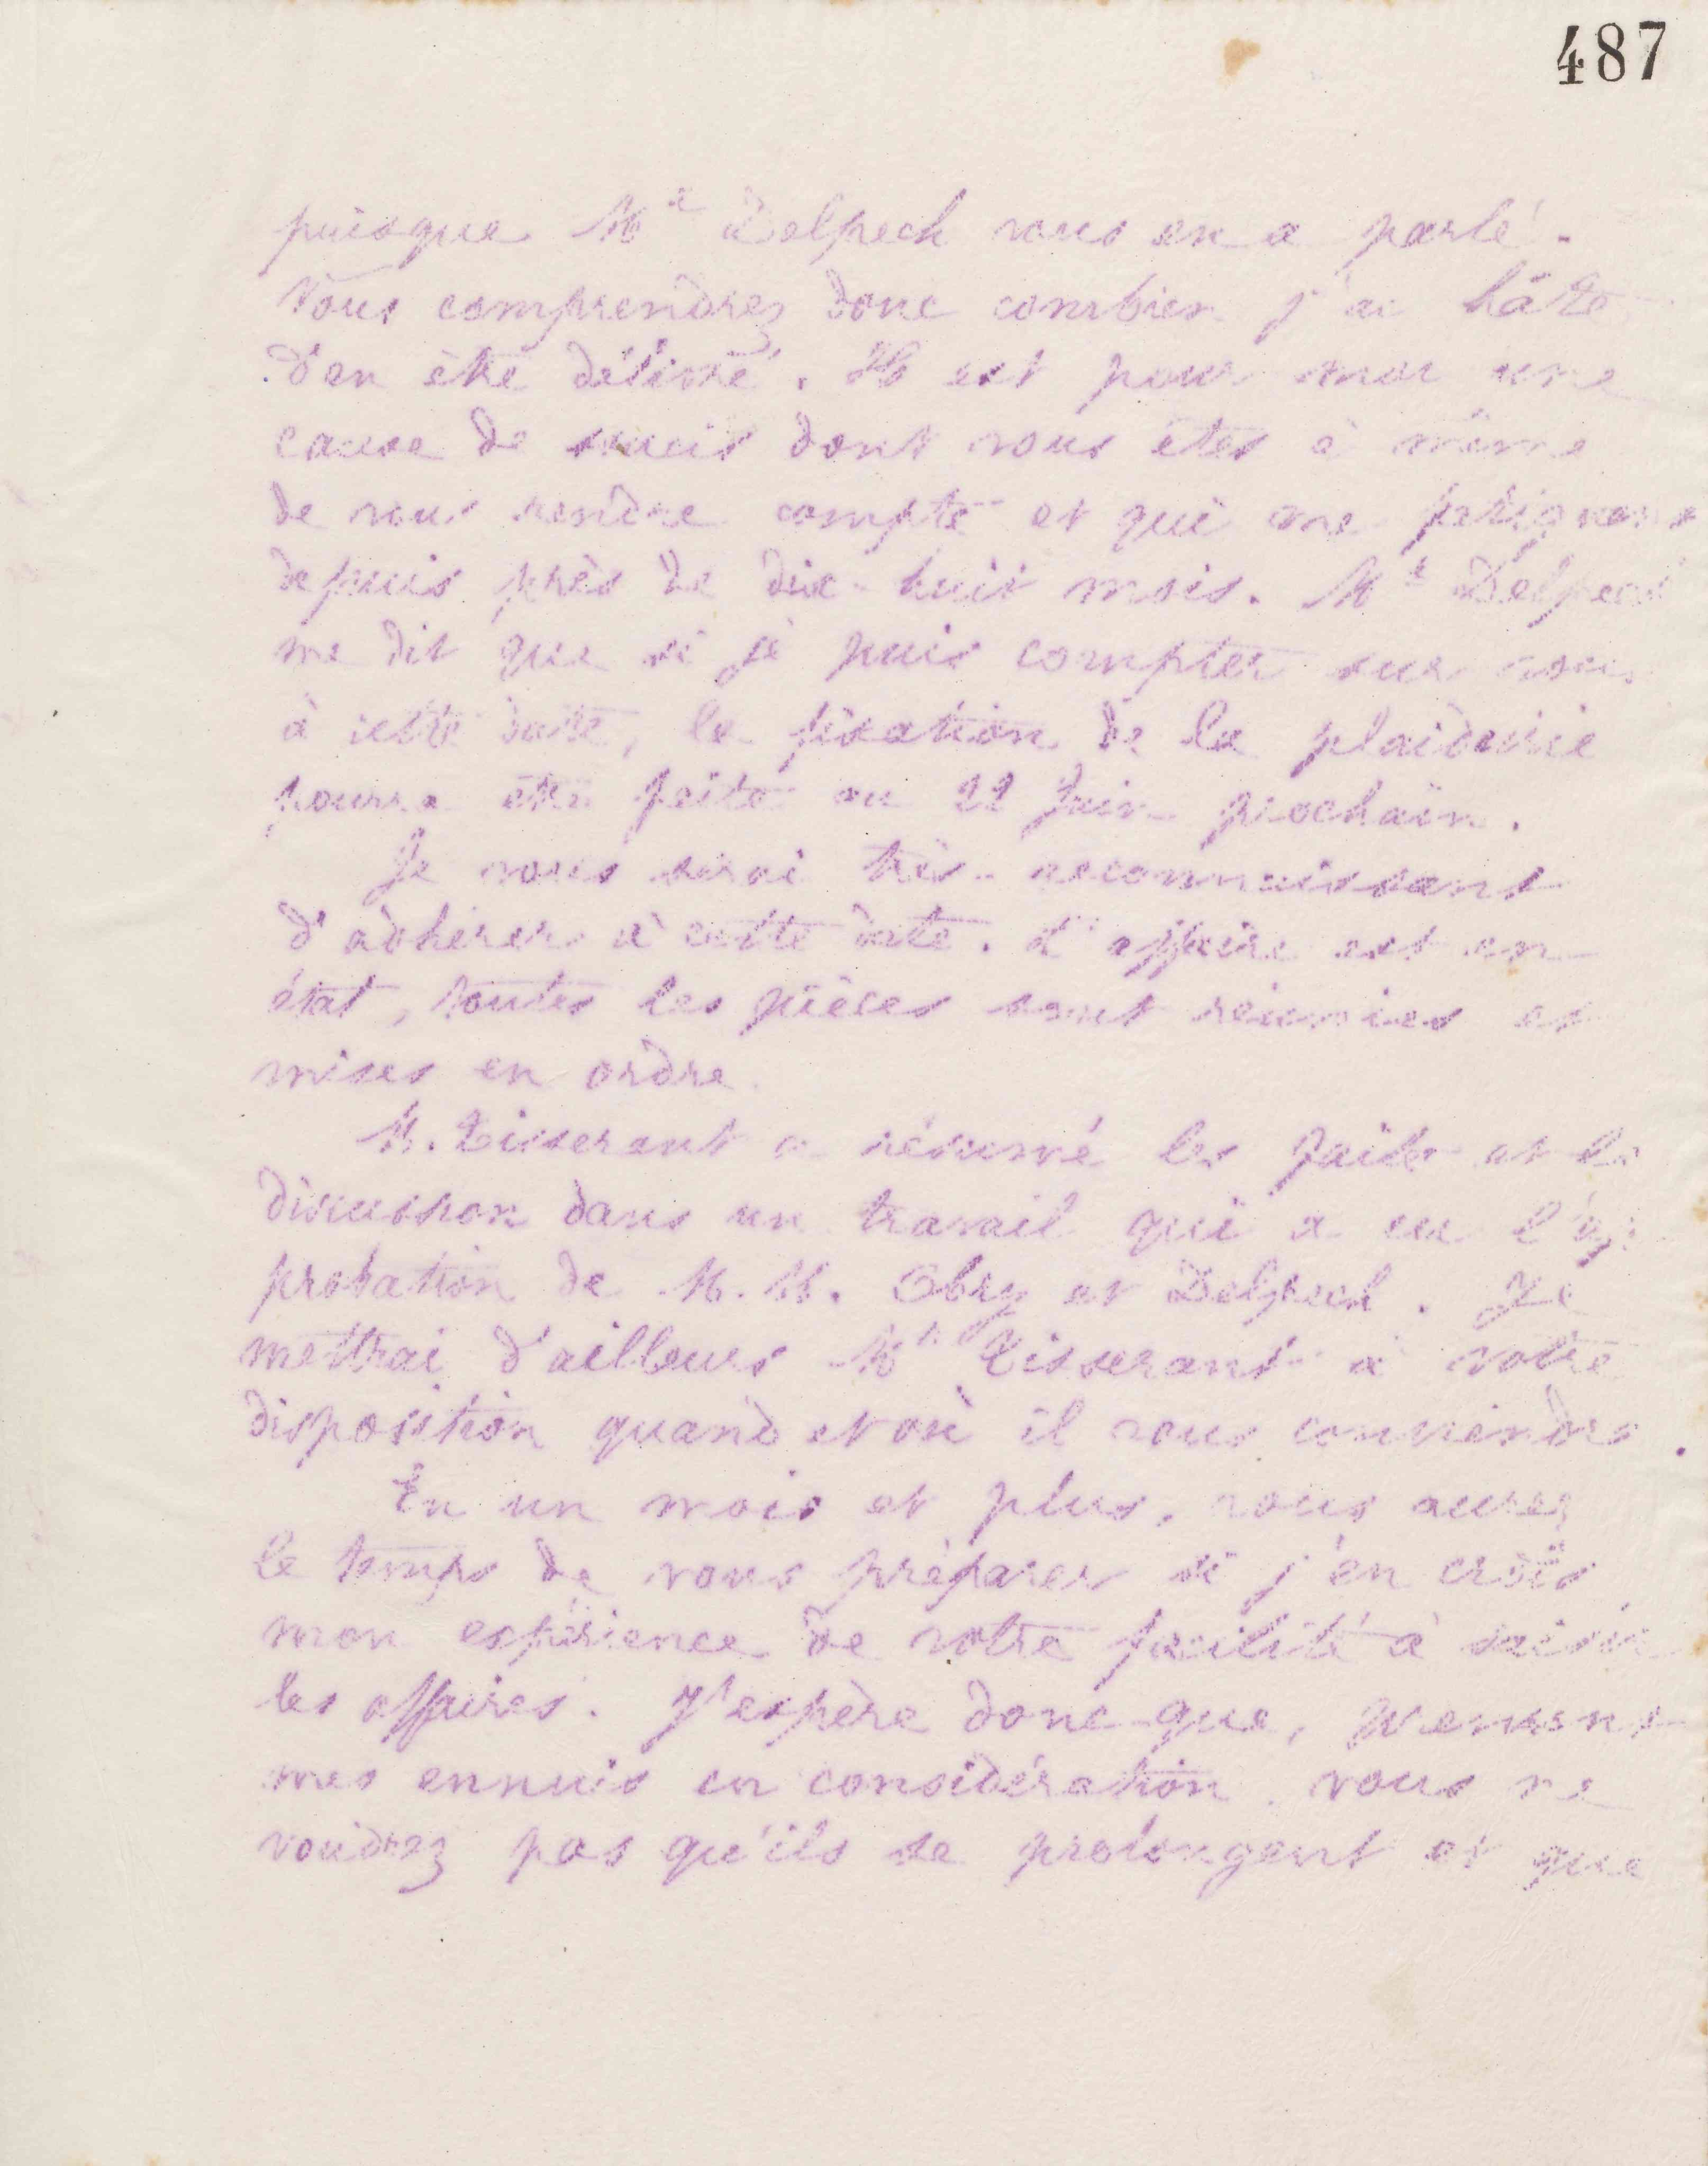 487
puisque Me Delpech vous en a parlé.
Vous comprendrez donc combien j'ai hâte
d'en être délivré. Il est pour moi une
cause de soucis dont vous êtes à même
de vous rendre compte et qui me fatiguent
depuis près de dix-huit mois. Me Delpech
me dit que si je puis compter sur vous
à cette date, la fixation de la plaidoirie
pourra être faite au 22 Juin prochain.
Je vous serai très-reconnaissant
d'adhérer à cette date. L'affaire est en
état, toutes les pièces sont réunies et
mises en ordre.
M. Tisserant a résumé les faits et la
discussion dans un travail qui a eu l'ap
probation de M. M. Obry et Delpech. Je
mettrai d'ailleurs Mr Tisserant à votre
disposition quand et où il vous conviendra.
En un mois et plus, vous aurez
le temps de vous préparer si j'en crois
mon expérience de votre facilité à saisir
les affaires. J'espère donc que, prenant
mes ennuis en considération, vous ne
voudrez pas qu'ils se prolongent et que